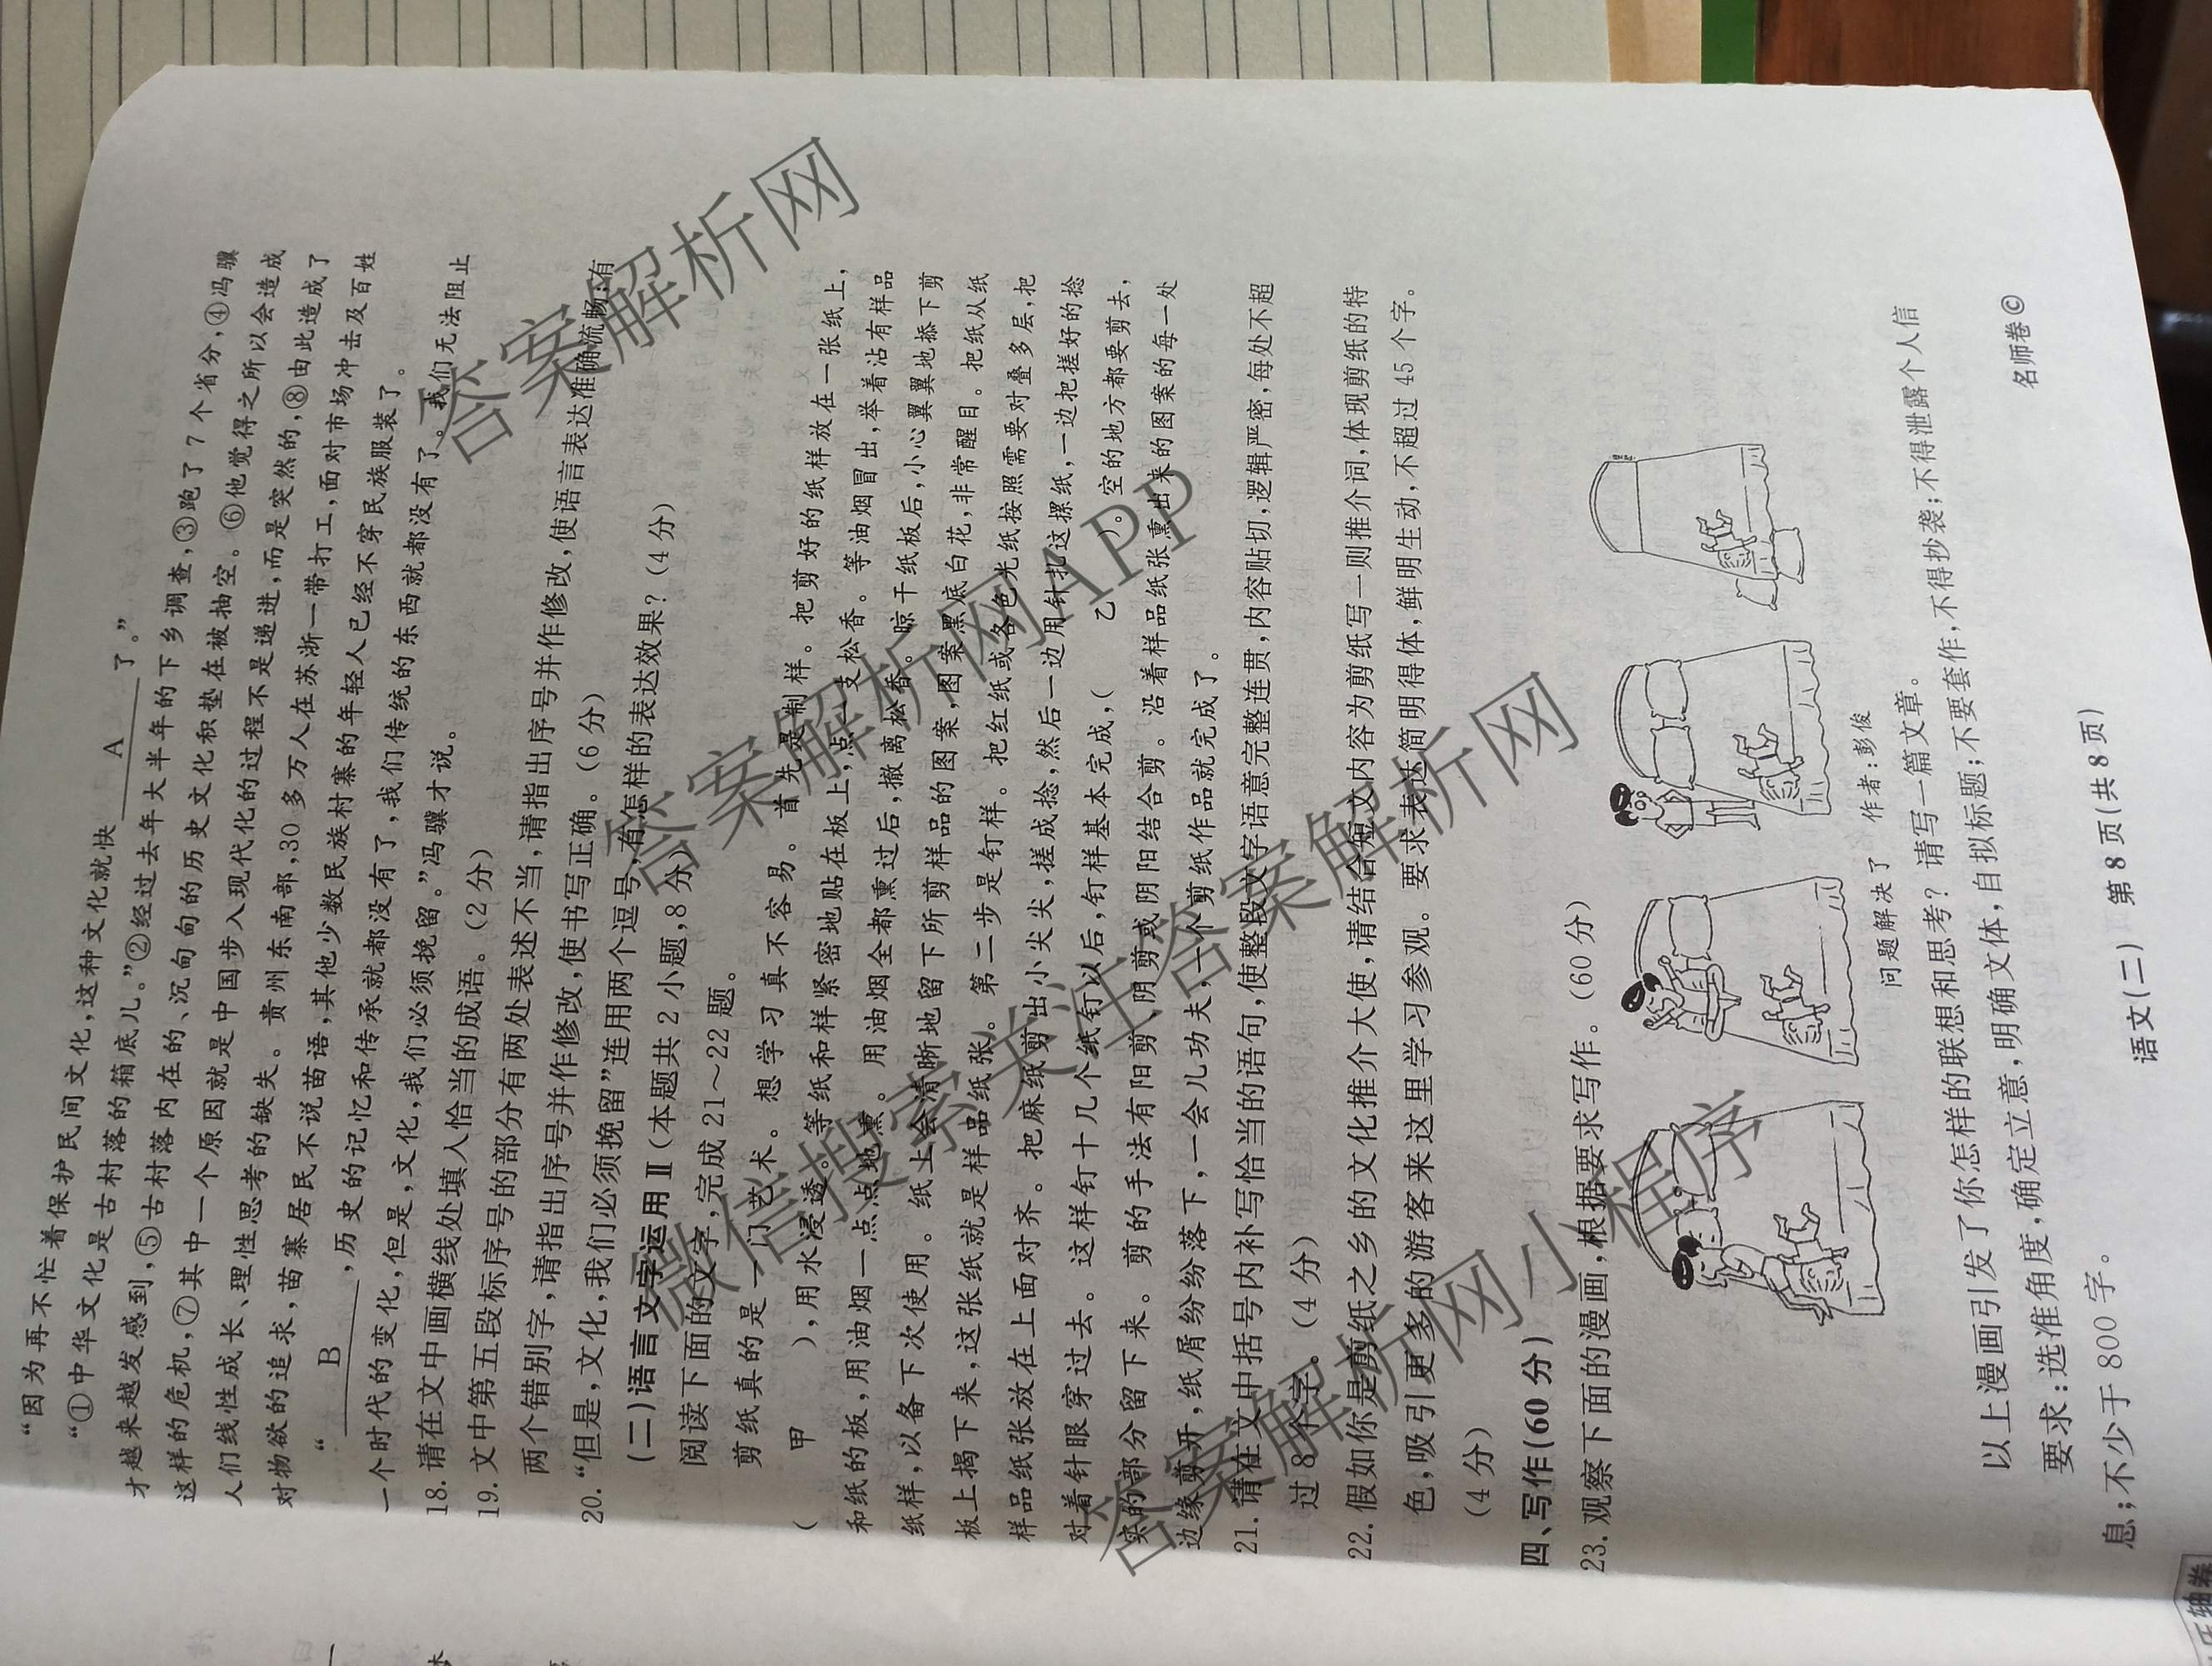 “因为再不忙着保护民间文化,这种文化就快 A 了。”
“①中华文化是古村落的箱底儿。”②经过去年大半年的下乡调查,③跑了7个省分,④冯骥
才越来越发感到,⑤古村落内在的、沉甸甸的历史文化积垫在被抽空。⑥他觉得之所以会造成
这样的危机,⑦其中一个原因就是中国步入现代化的过程不是递进,而是突然的,⑧由此造成了
人们线性成长、理性思考的缺失。贵州东南部,30多万人在苏浙一带打工,面对市场冲击及百姓
对物欲的追求,苗寨居民不说苗语,其他少数民族村寨的年轻人已经不穿民族服装了。
“ B ,历史的记忆和传承就都没有了,我们传统的东西就都没有了。我们无法阻止
一个时代的变化,但是,文化,我们必须挽留。”冯骥才说。
18.请在文中画横线处填入恰当的成语。(2分)
19.文中第五段标序号的部分有两处表述不当,请指出序号并作修改,使语言表达准确流畅;有
两个错别字,请指出序号并作修改,使书写正确。(6分)
20.“但是,文化,我们必须挽留”连用两个逗号,有怎样的表达效果?(4分)
(二)语言文字运用Ⅱ(本题共2小题,8分)
阅读下面的文字,完成21~22题。
剪纸真的是一门艺术。想学习真不容易。首先是制样。把剪好的纸样放在一张纸上,
( 甲 ),用水浸透。等纸和样紧密地贴在板上,点一支松香。等油烟冒出,举着沾有样品
和纸的板,用油烟一点点地熏。用油烟全都熏过后,撤离松香。晾干纸板后,小心翼翼地揭下剪
纸样,以备下次使用。纸上会清晰地留下所剪样品的图案,图案黑底白花,非常醒目。把纸从纸
板上揭下来,这张纸就是样品纸张。第二步是钉样。把红纸或各色光纸按照需要对叠多层,把
样品纸张放在上面对齐。把麻纸剪出小尖尖,搓成捻,然后一边用针扎这摞纸,一边把搓好的捻
对着针眼穿过去。这样钉十几个纸钉以后,钉样基本完成,( 乙 )。空的地方都要剪去,
实的部分留下来。剪的手法有阳剪、阴剪或阴阳结合剪。沿着样品纸张熏出来的图案的每一处
边缘剪开,纸屑纷纷落下,一会儿功夫,一个剪纸作品就完成了。
21.请在文中括号内补写恰当的语句,使整段文字语意完整连贯,内容贴切,逻辑严密,每处不超
过8个字。(4分)
22.假如你是剪纸之乡的文化推介大使,请结合短文内容为剪纸写一则推介词,体现剪纸的特
色,吸引更多的游客来这里学习参观。要求表达简明得体,鲜明生动,不超过45个字。
(4分)
四、写作(60分)
23.观察下面的漫画,根据要求写作。(60分)
问题解决了 作者:彭俊
以上漫画引发了你怎样的联想和思考?请写一篇文章。
要求:选准角度,确定立意,明确文体,自拟标题;不要套作,不得抄袭;不得泄露个人信
息;不少于800字。
语文(二) 第8页(共8页)
名师卷©
答案解析网
答案解析网
答案解析网APP
微信搜索关注答案解析网
答案解析网小程序